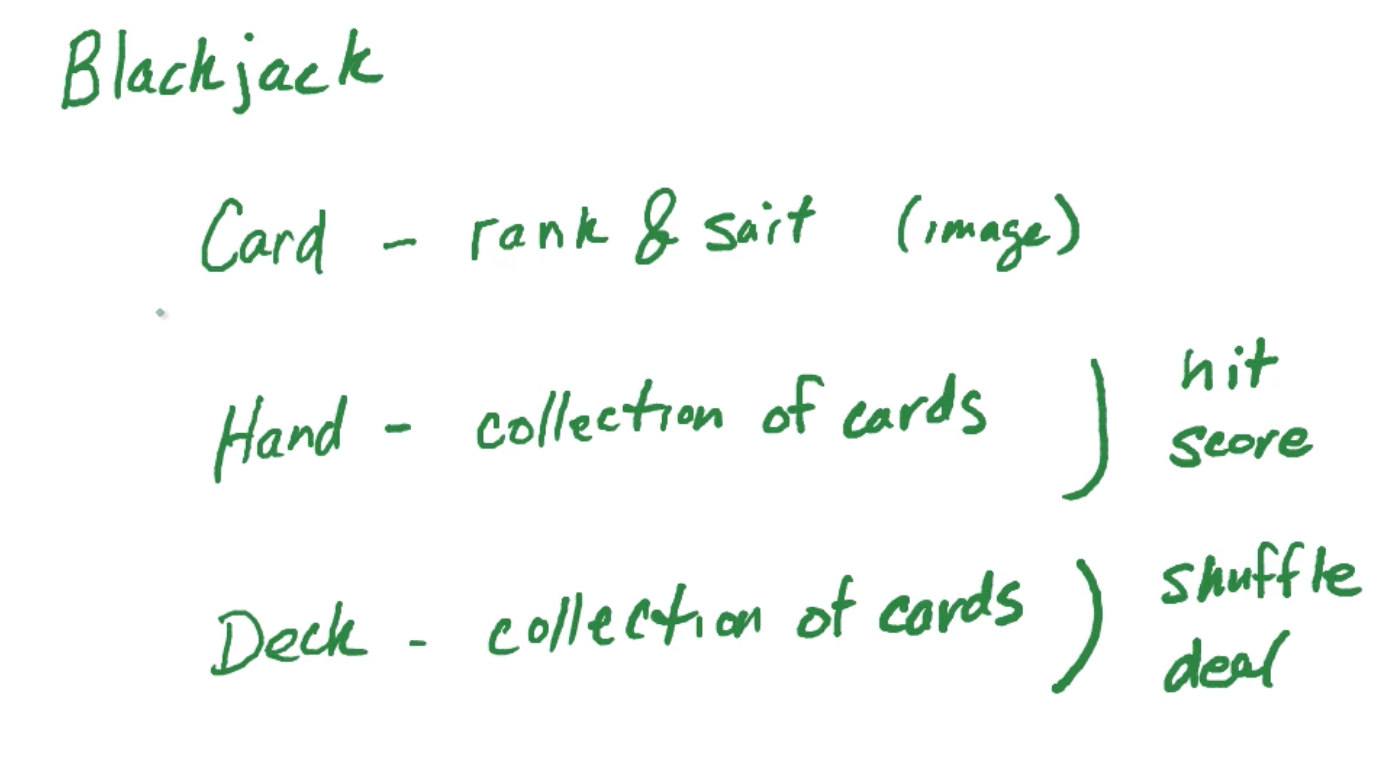 Blackjack
Card - rank & suit (image)
Hand - collection of cards ) hit
score
Deck - collection of cards ) shuffle
deal